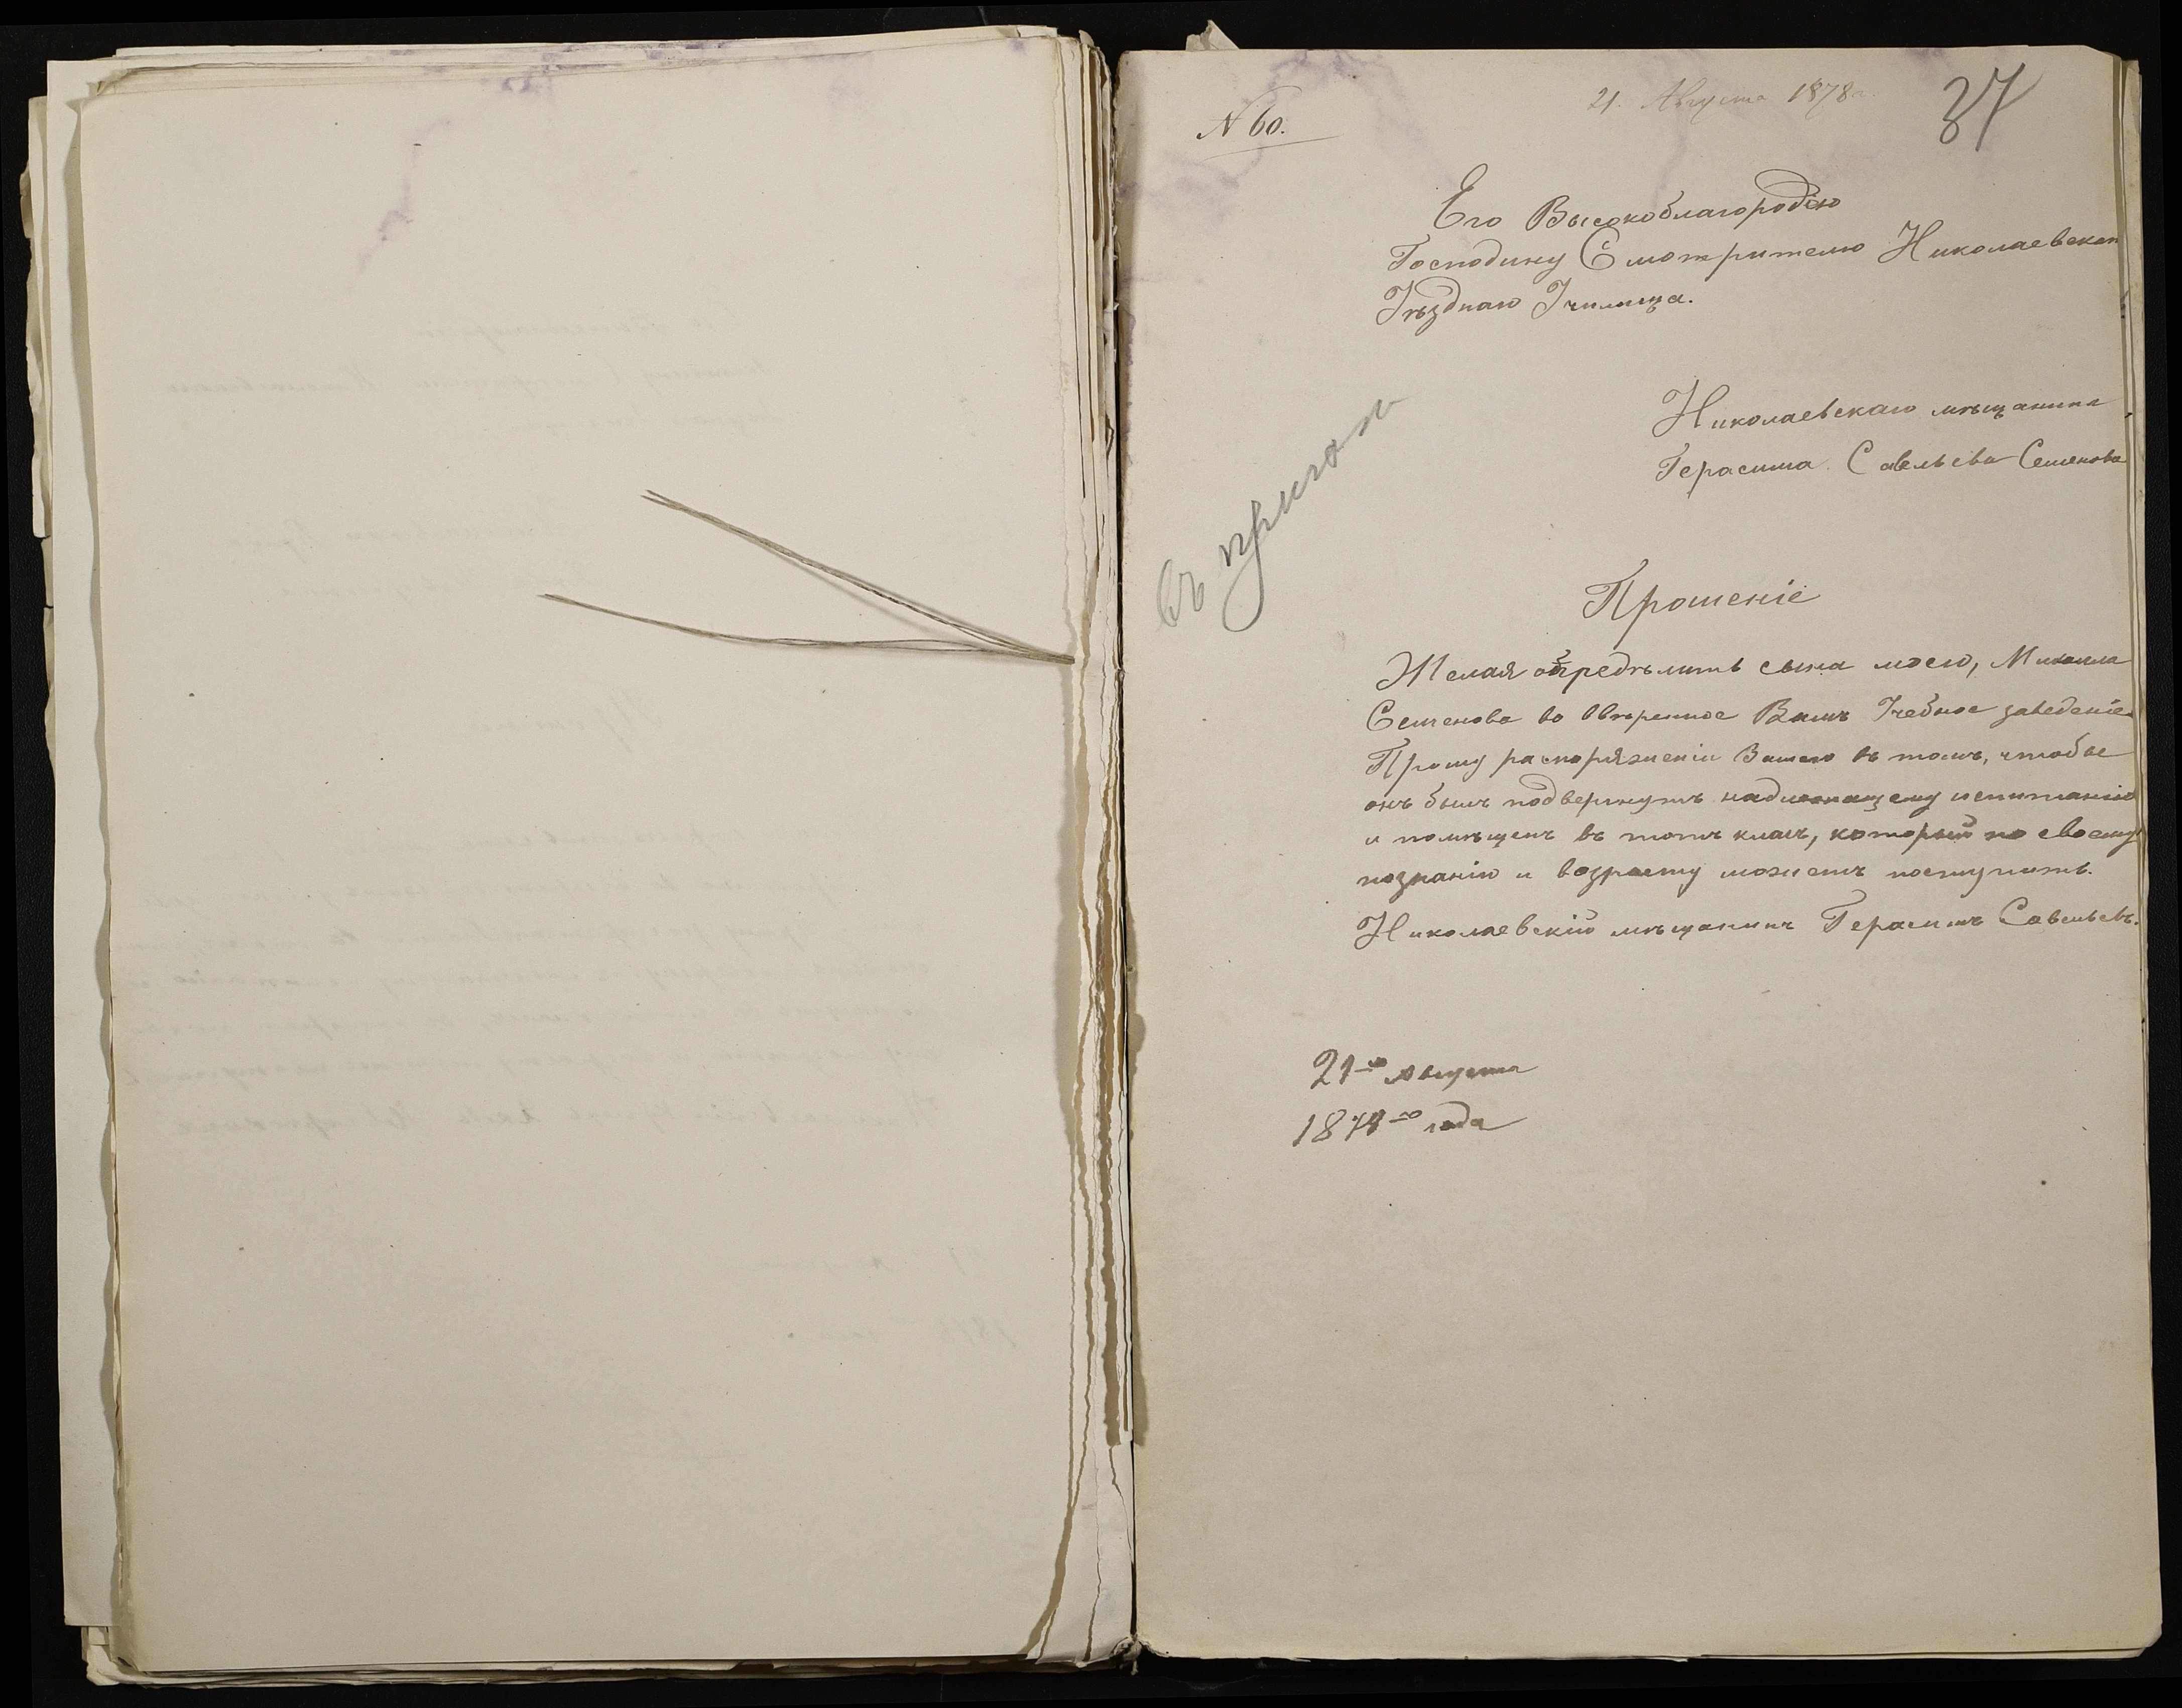 N 60.
21. Августа 1878 г.
37
Его Высокоблагородію
Господину Смотрителю Николаевскаг
Уѣзднаго Училища.
Николаевскаго мѣщанина
Герасима Савельева Семенова
въ приготн
Прошеніе
Желая опредѣлить сына моего, Михаила
Семенова во ввѣренное Вамъ Учебное заведеніе
Прошу распоряженіи Вашего въ томъ, чтобы
онъ былъ подвергнутъ надлежащему испитанію
и помѣщенъ въ тотъ класъ, который по своему
познанію и возрасту можетъ поступить.
Николаевскій мѣщанинъ Герасимъ Савельевъ.
21го Августа
1878го года